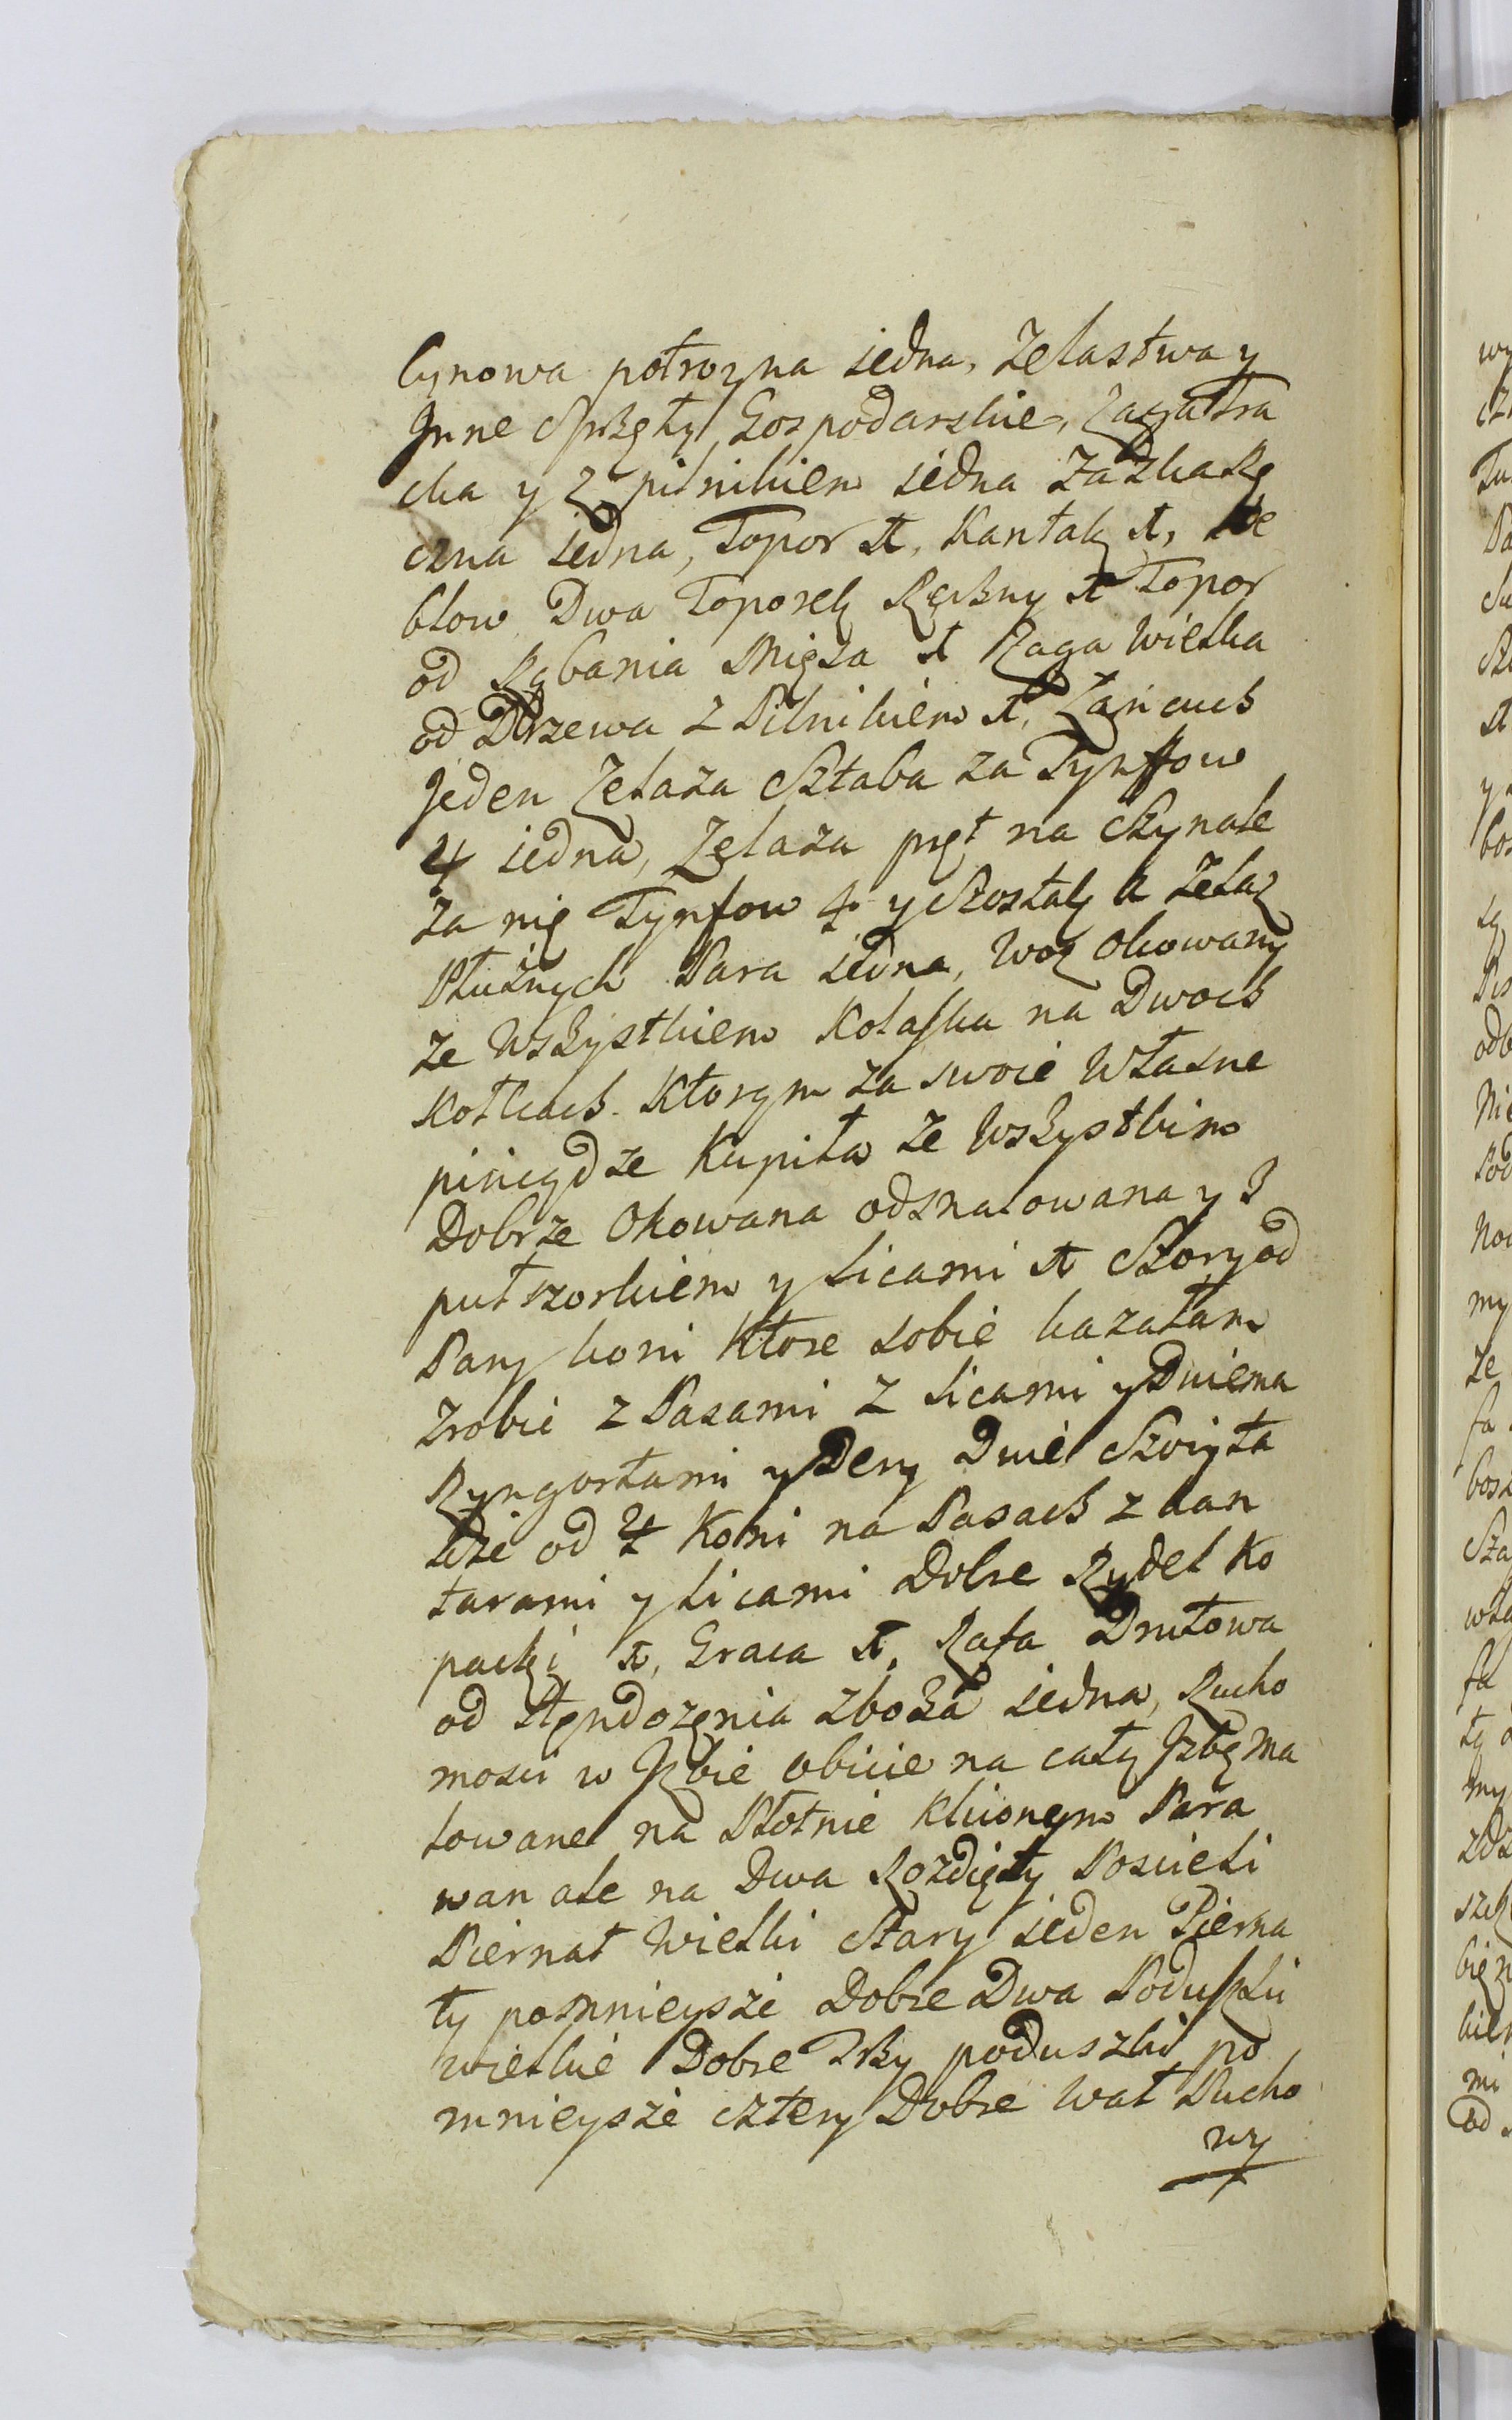 Cynowa potrozna iedna, Zelastwa y
Jnne Sprzęty Gospodarskie,
cka y z pilnikiem iedna
czna iedna, Topor 1, Kantak 1, He
blow Dwa Toporek Ręczny 1 Topor
od Rąbania Mięsa 1 Raga Wielka
od Drzewa z Pilnikiem 1, Łańcuch
Jeden Zelaza Sztaba za Tynffow
4 iedna, Zelaza pręt na Szynale
za nię Tynfow 4 y Szostak 1 Zelaz
Płużnych Para iedna, Woz Okowany
ze Wszystkiem Kolaska na Dwoch
Kołkach. Ktorym za swoie Własne
piniędze Kupiła ze Wszystkim
Dobrze Okowana odmalowana y z
pułszorkiem y Licami 1 Szory od
Pary koni Ktore sobie kazałam
zrobić z Pasami z Licami y Dwiema
Ryngortami y Dery Dwie Szory ta
kże od 4 Koni na Pasach z kan
tarami y Licami Dobre Rydel Ko
packi 1, Graca 1, Rafa Drutowa
od zboża iedna, Rucho
mości w Jzbie obicie na cały Jzbę Ma
lowane na Płotnie Kliionym Para
wan ale na Dwa Rozdięty Pościeli
Piernat Wielki Stary ieden Pierna
ty pomnieysze Dobre Dwa Poduszki
wielkie Dobre Trzy poduszki po
mnieysze cztery Dobre Wał Pucho
wy